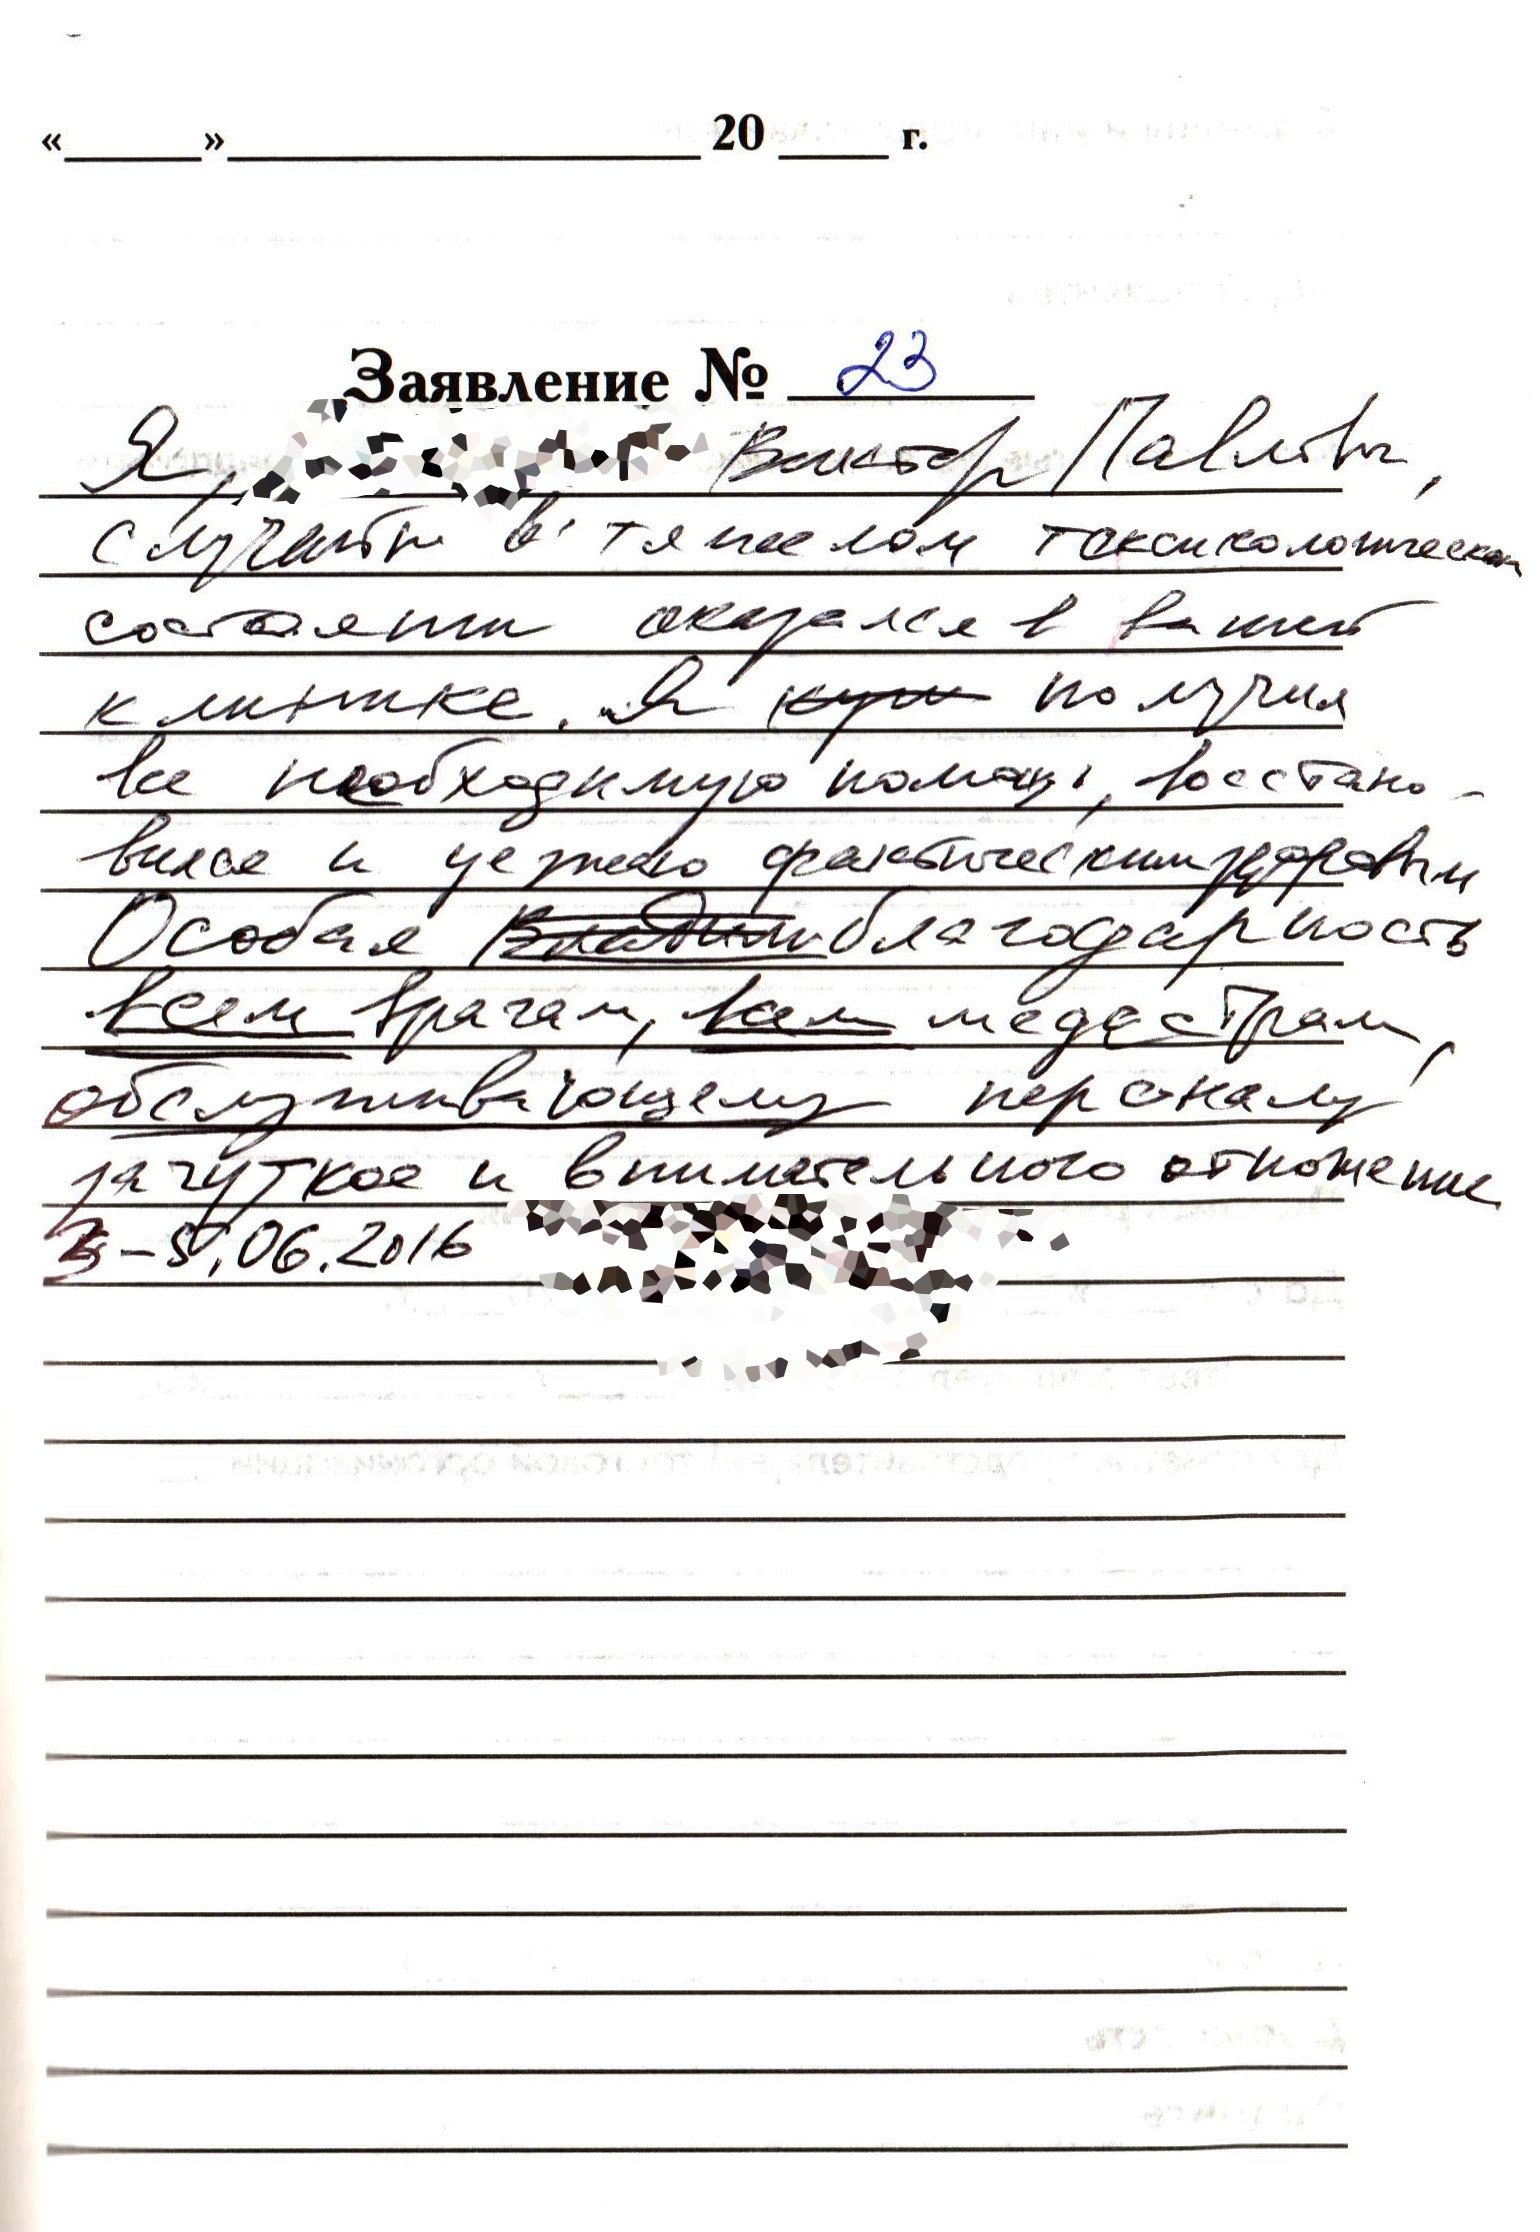 «____»____ 20 ____ г.
Заявление № 23
Я, Виктор Павлович,
случайно в тяжелом токсикологическом
состоянии оказался в вашей
клинике. Я получил
все необходимую помощь, восстано-
вился и уезжаю фактически здоровым
Особая благодарность
всем врачам, всем медсестрам,
обслуживающему персоналу
за чуткое и внимательного отношение
3-5.06.2016